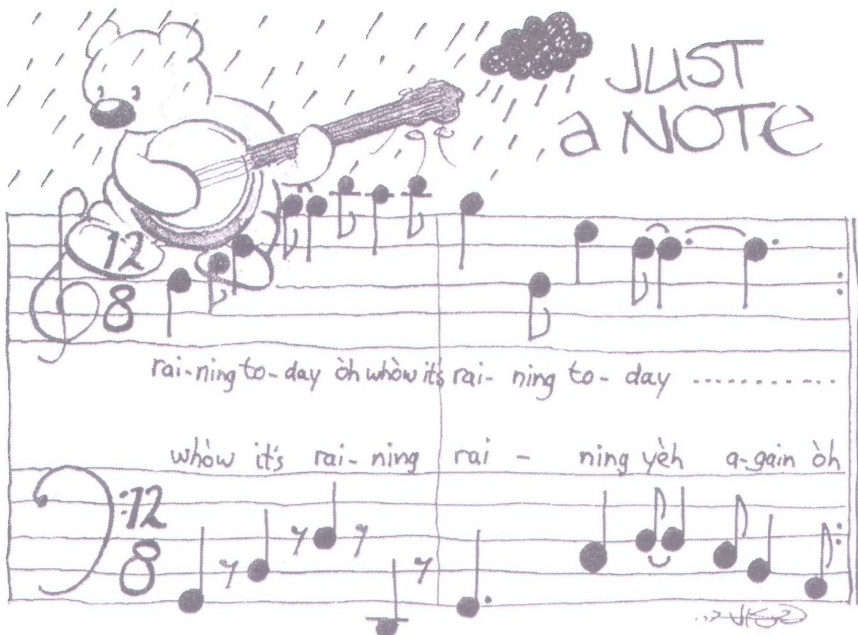 JUST
a NOTE
12
8
rai-ning to-day òh whòw it's rai-ning to-day ..............
whòw it's rai-ning rai-ning yèh a-gain òh
12
8